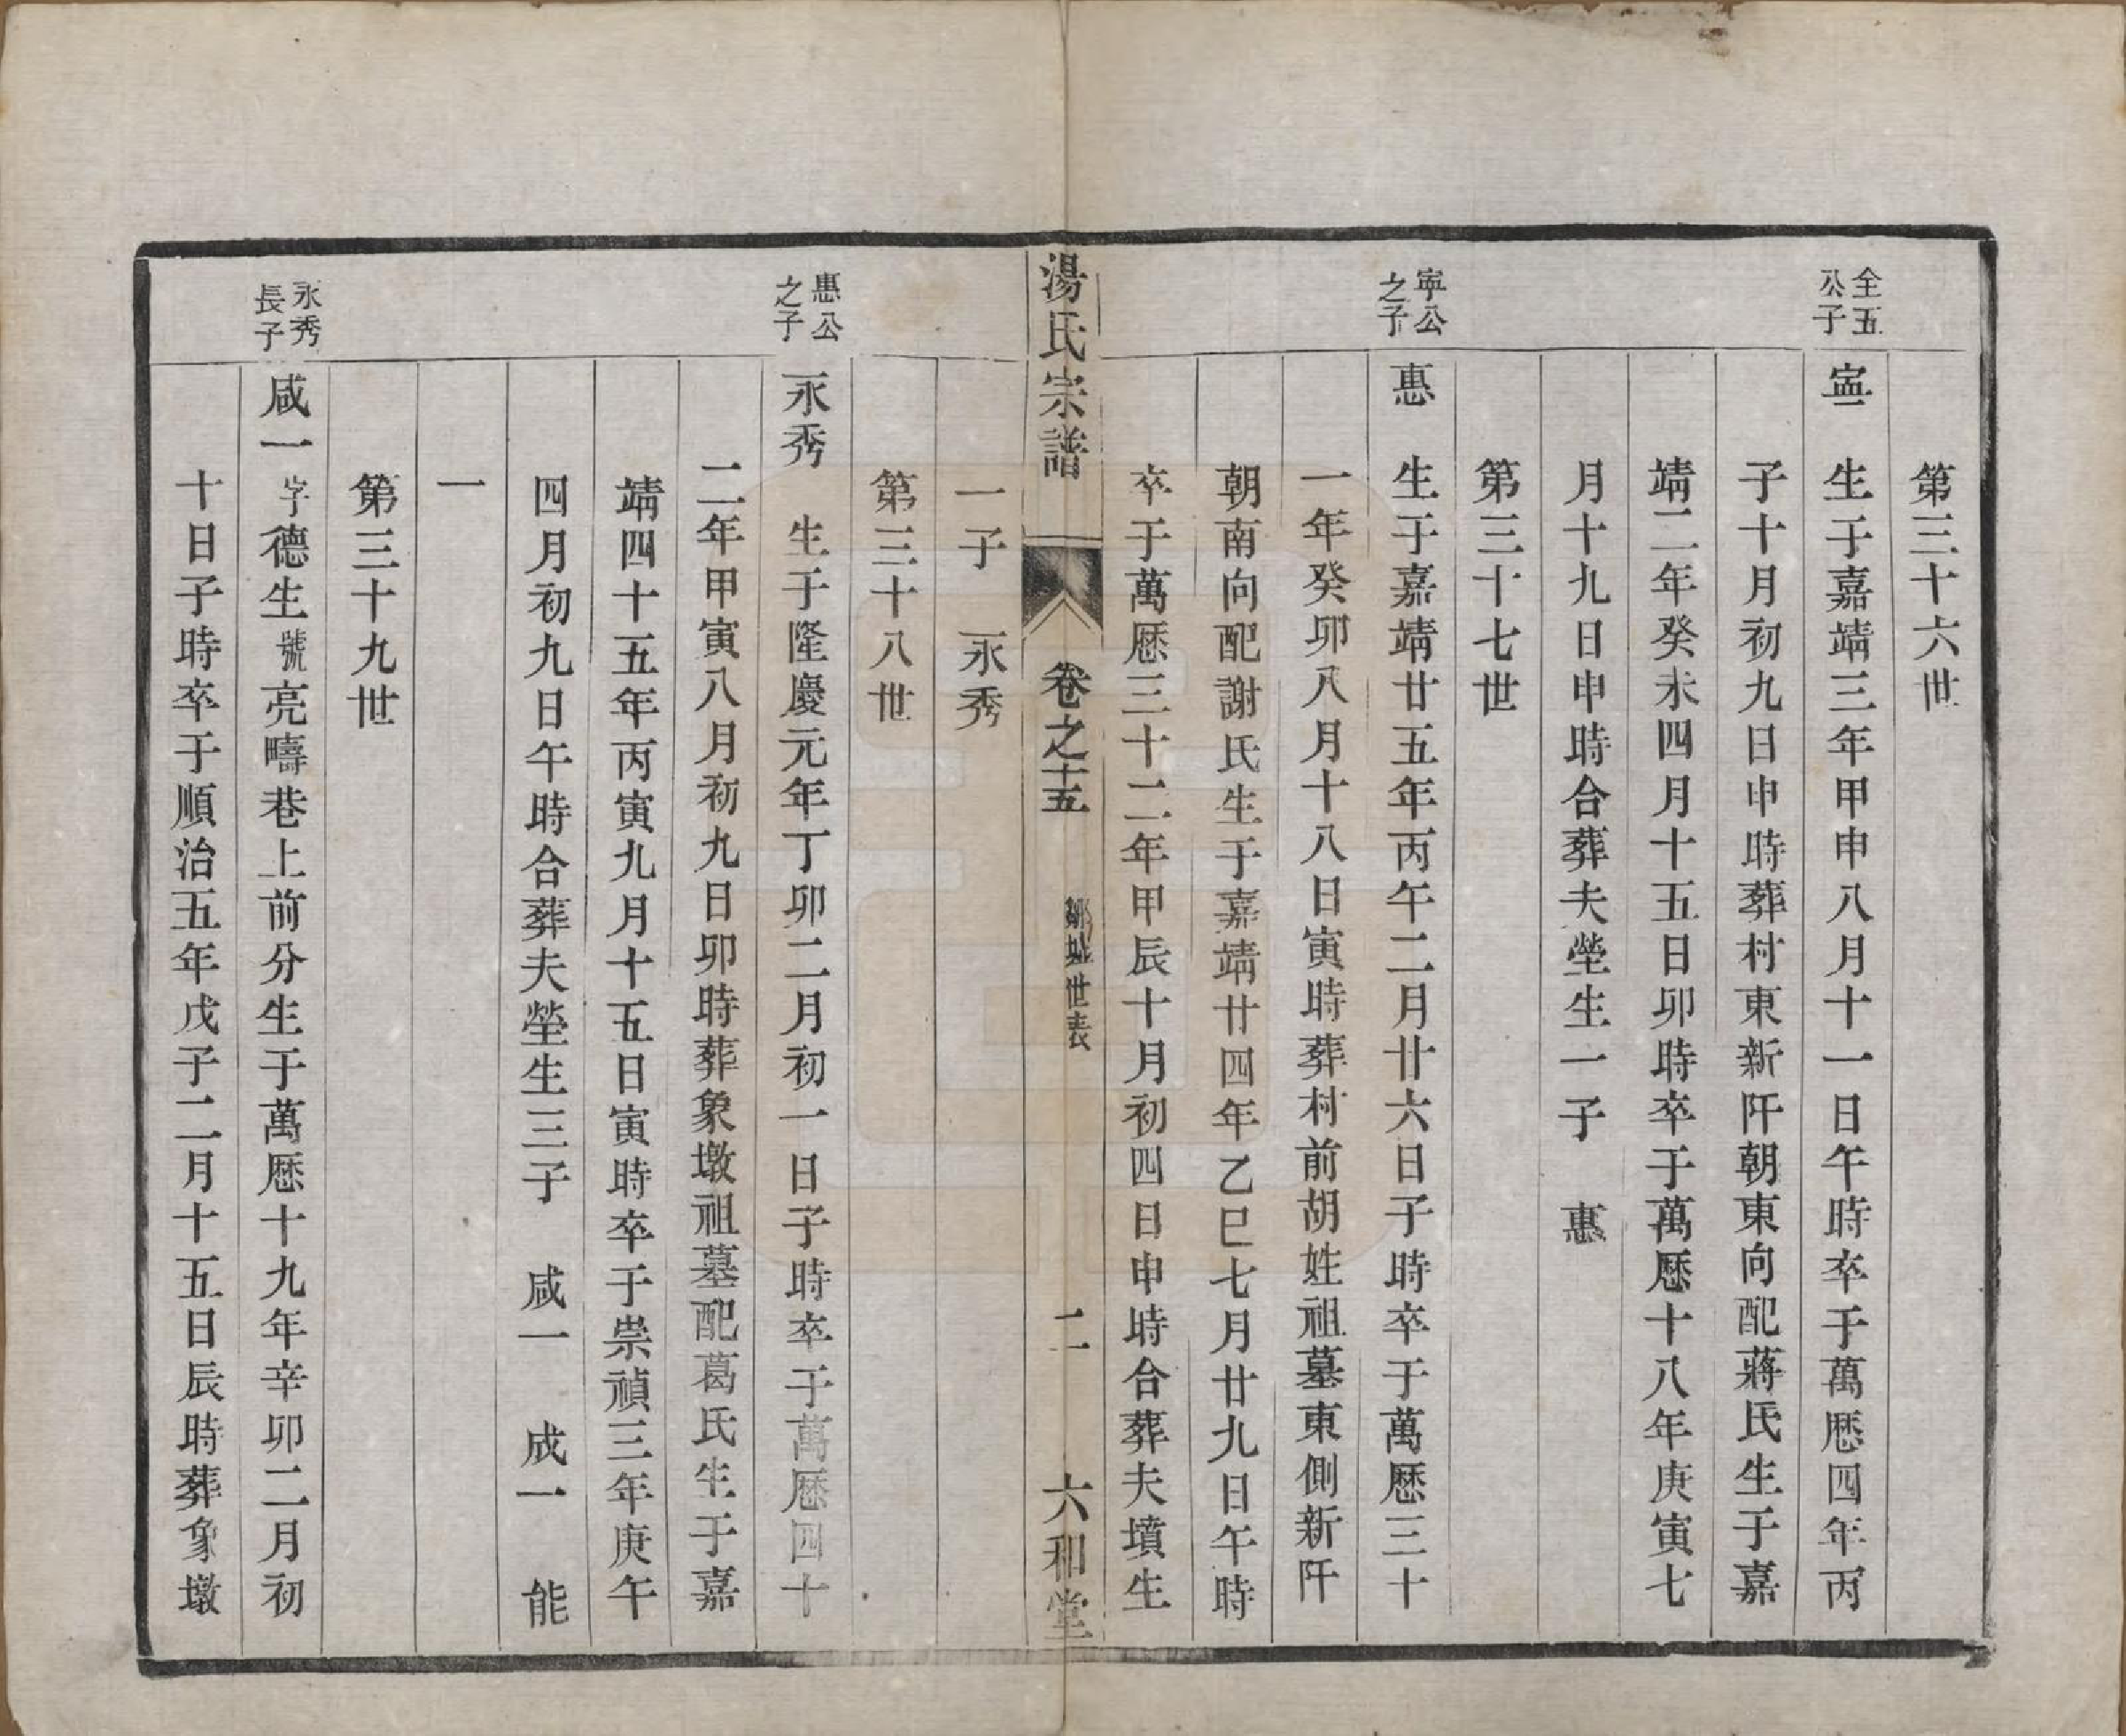 第三十六世
全五公子
寍　生于嘉靖三年甲申八月十一日午時卒于萬厯四年丙
子十月初九日申時葬村東新阡朝東向配蔣氏生于嘉
靖二年癸未四月十五日卯時卒于萬厯十八年庚寅七
月十九日申時合葬夫塋生一子　惠
第三十七世
寧公之子
惠　生于嘉靖廿五年丙午二月廿六日子時卒于萬厯三十
一年癸卯八月十八日寅時葬村前胡姓祖墓東側新阡
朝南向配謝氏生于嘉靖廿四年乙巳七月廿九日午時
卒于萬厯三十二年甲辰十月初四日申時合葬夫墳生
一子　永秀
湯氏宗譜　卷之十五　鄒墟世表　二　六和堂
第三十八世
惠公之子
永秀　生于隆慶元年丁卯二月初一日子時卒于萬厯四十
二年甲寅八月初九日卯時葬象墩祖墓配葛氏生于嘉
靖四十五年丙寅九月十五日寅時卒于崇禎三年庚午
四月初九日午時合葬夫塋生三子　咸一　成一　能
一
第三十九世
永秀長子
咸一　字德生號亮疇巷上前分生于萬厯十九年辛卯二月初
十日子時卒于順治五年戊子二月十五日辰時葬象墩